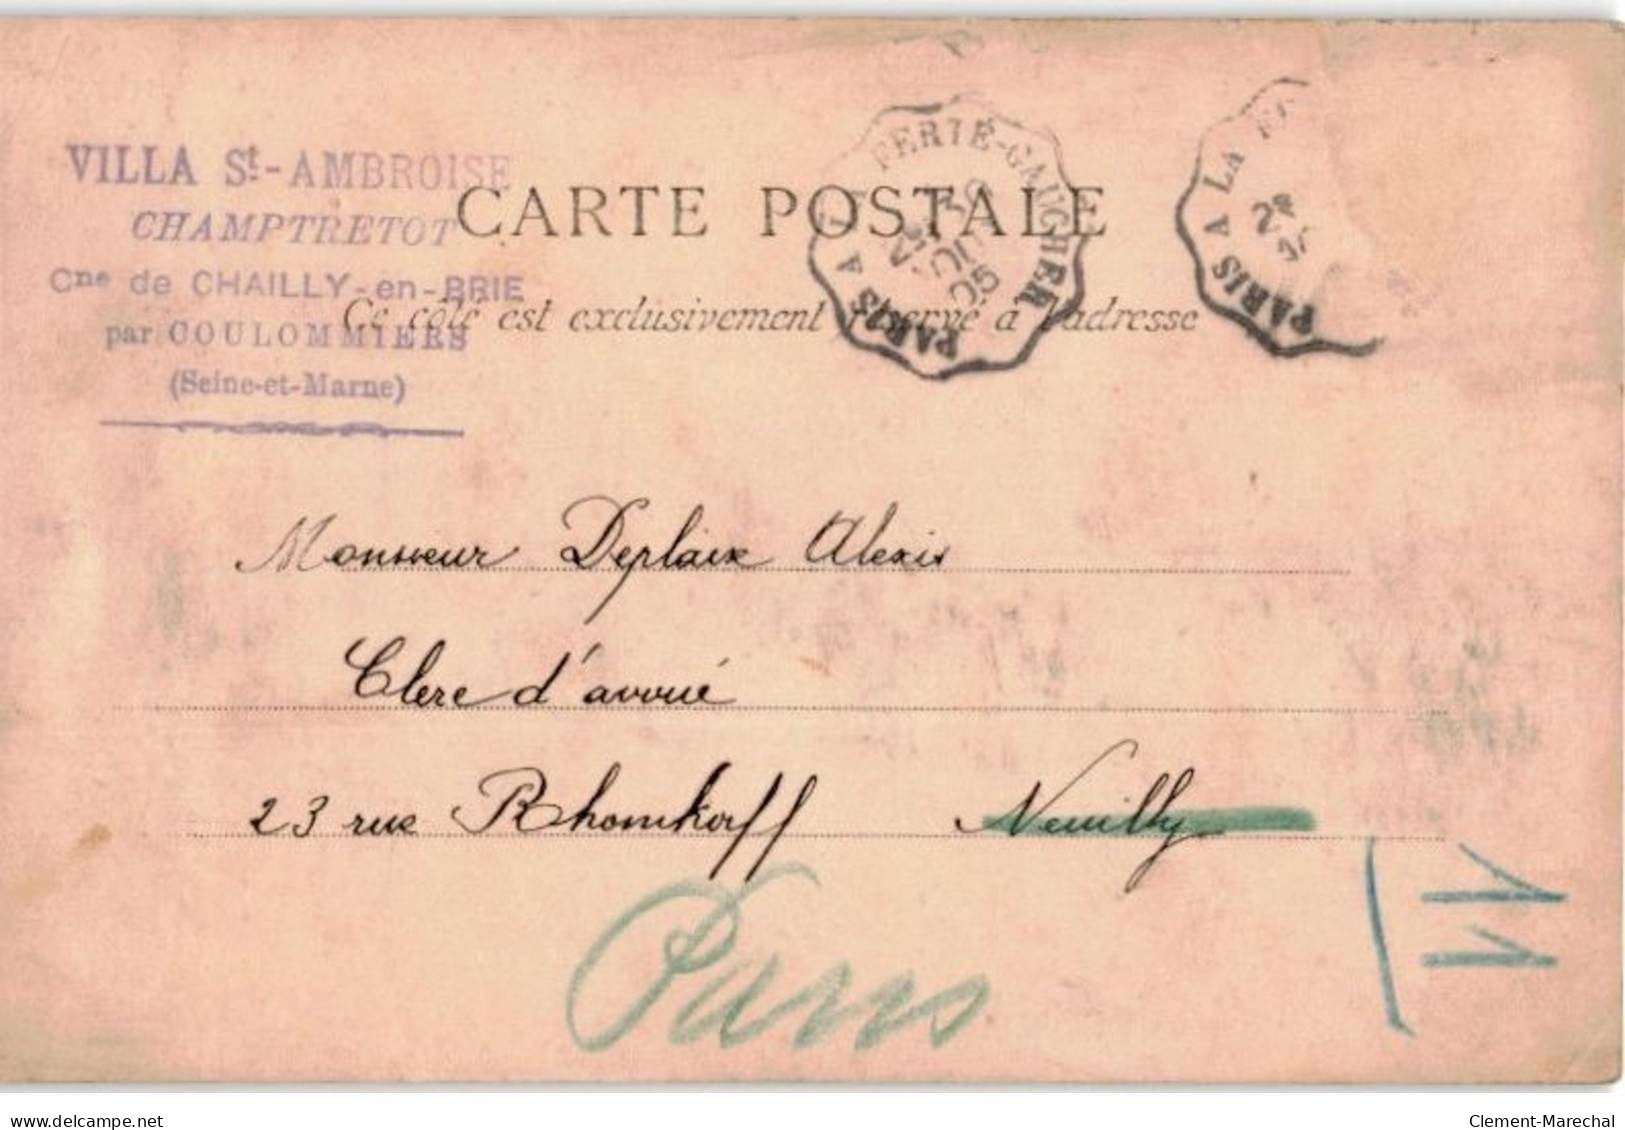 VILLA St-AMBROISE
CHAMPTRETOT
Cne de CHAILLY-en-BRIE
par COULOMMIERS
(Seine-et-Marne)
CARTE POSTALE
Ce côté est exclusivement réservé à l'adresse
PARIS A LA FERTÉ-GAUCHER
AOUT 05
PARIS A LA
Monsieur Deplaix Alexis
Clerc d'avoué
23 rue Rhomkorff Neuilly
Paris
delcampe.net
Clement-Marechal